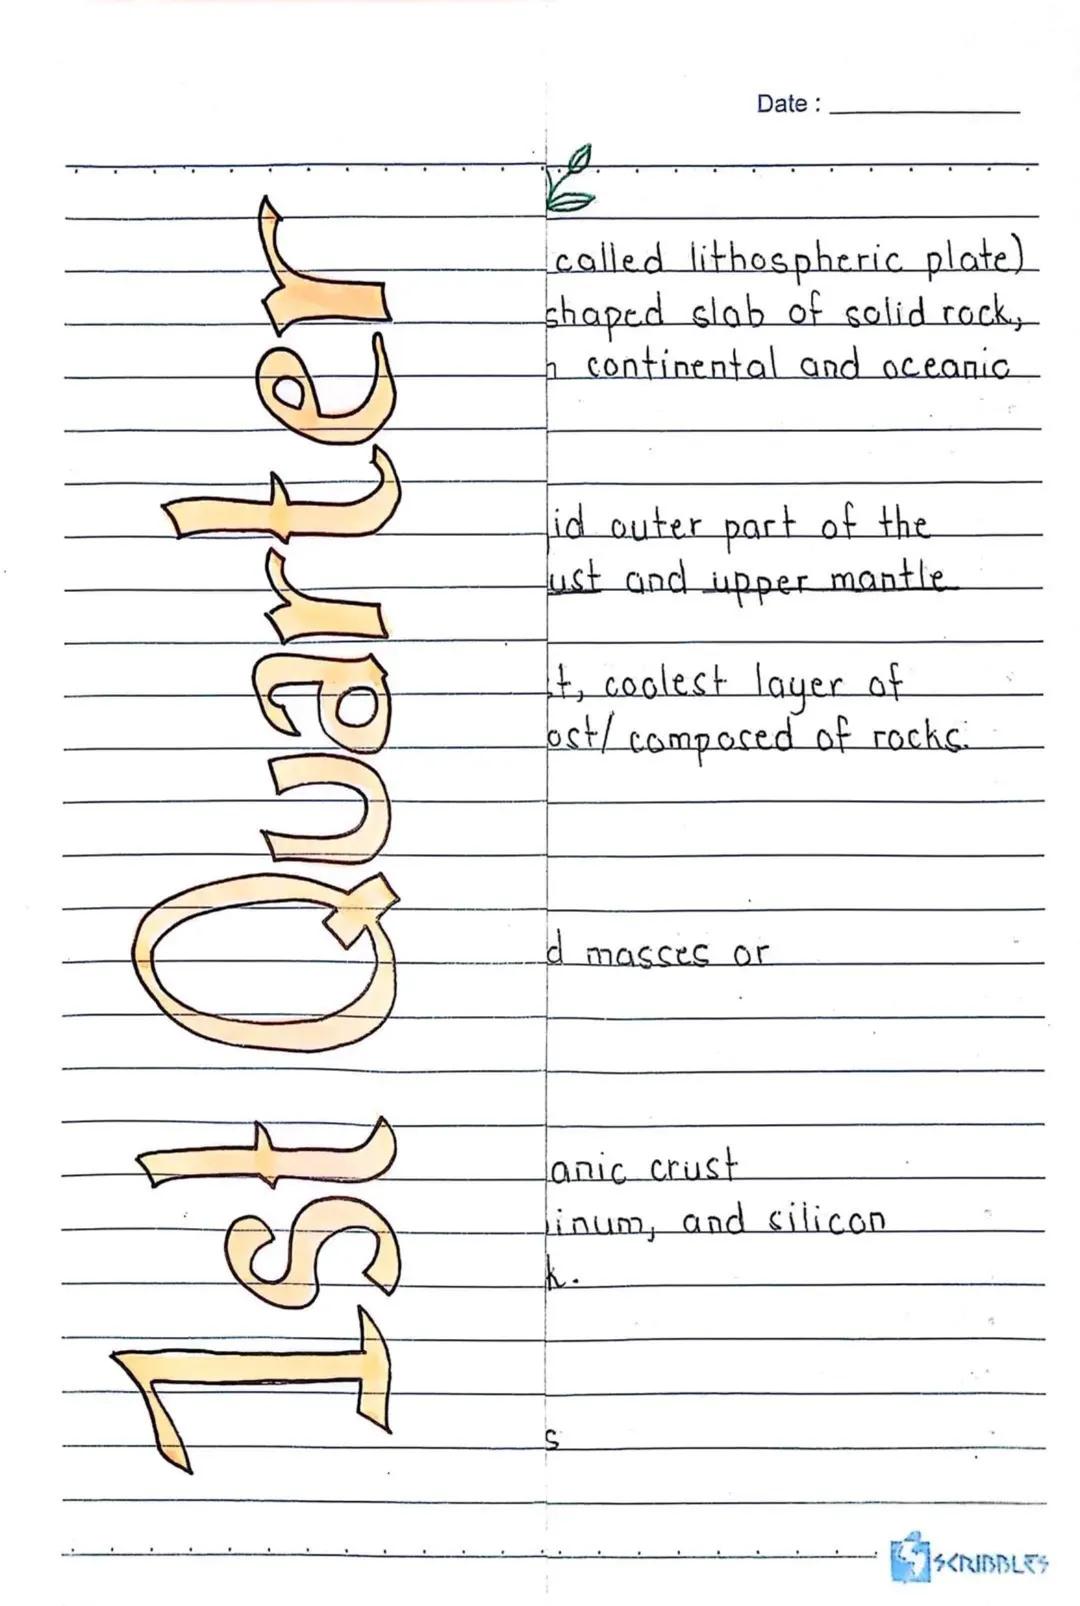 Date :
1st Quarter
called lithospheric plate)
shaped slab of solid rock,
continental and oceanic
id outer part of the
ust and upper mantle
t, coolest layer of
ost/ composed of rocks.
d masses or
anic crust
inum, and silicon
k.
s
SCRIBBLES